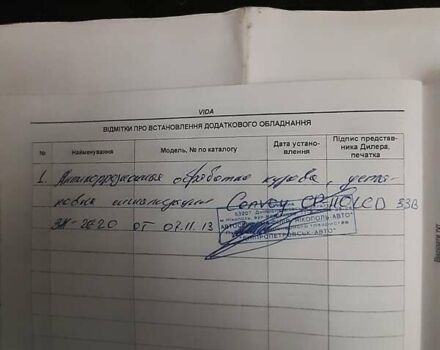 VIDA
ВІДМІТКИ ПРО ВСТАНОВЛЕННЯ ДОДАТКОВОГО ОБЛАДНАННЯ
№ Найменування Модель, № по каталогу Дата устано-
влення Підпис представ-
ника Дилера,
печатка
1. Антикоррозионная обработка кузова, уста-
новка сигнализации Convoy
ЗН-2620 ОТ 07.11.13
НІКОПОЛЬ-АВТО"
"ДНІПРОПЕТРОВСЬК-АВТО"